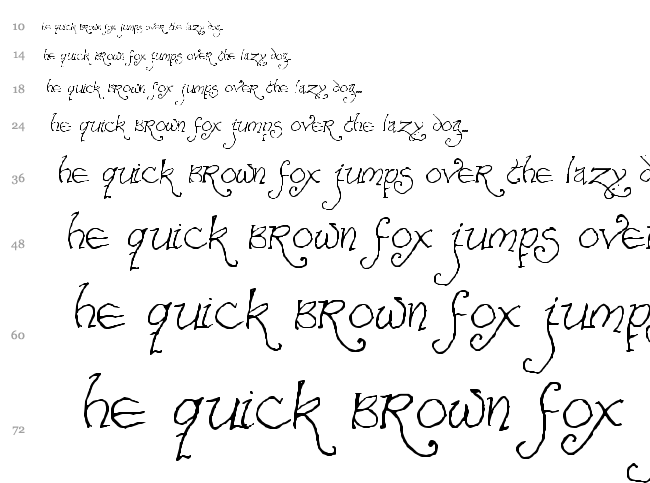 10 he quick brown fox jumps over the lazy dog.
14 he quick brown fox jumps over the lazy dog.
18 he quick brown fox jumps over the lazy dog.
24 he quick brown fox jumps over the lazy dog.
36 he quick brown fox jumps over the lazy d
48 he quick brown fox jumps over
60 he quick brown fox jump
72 he quick brown fox